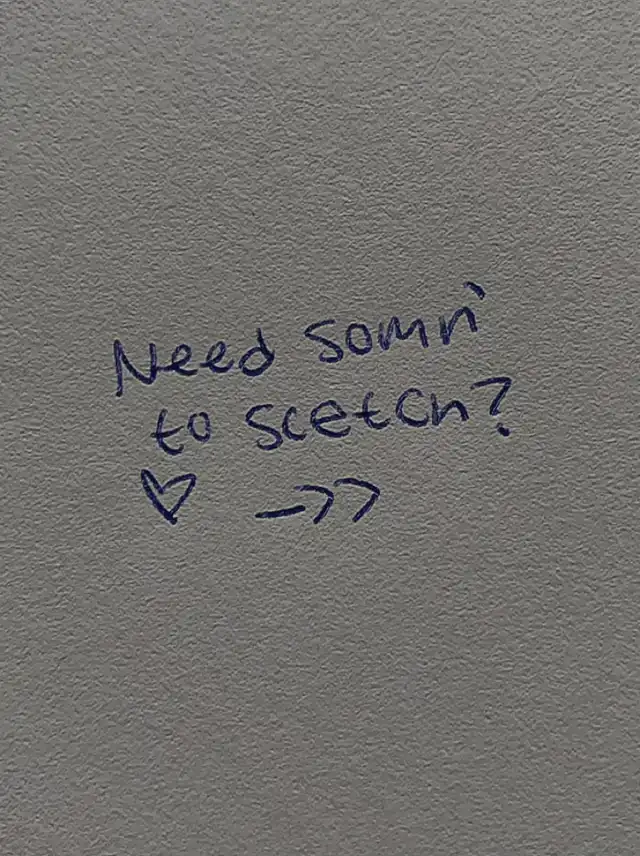 Need somn'
to scetch?
♡ ->>